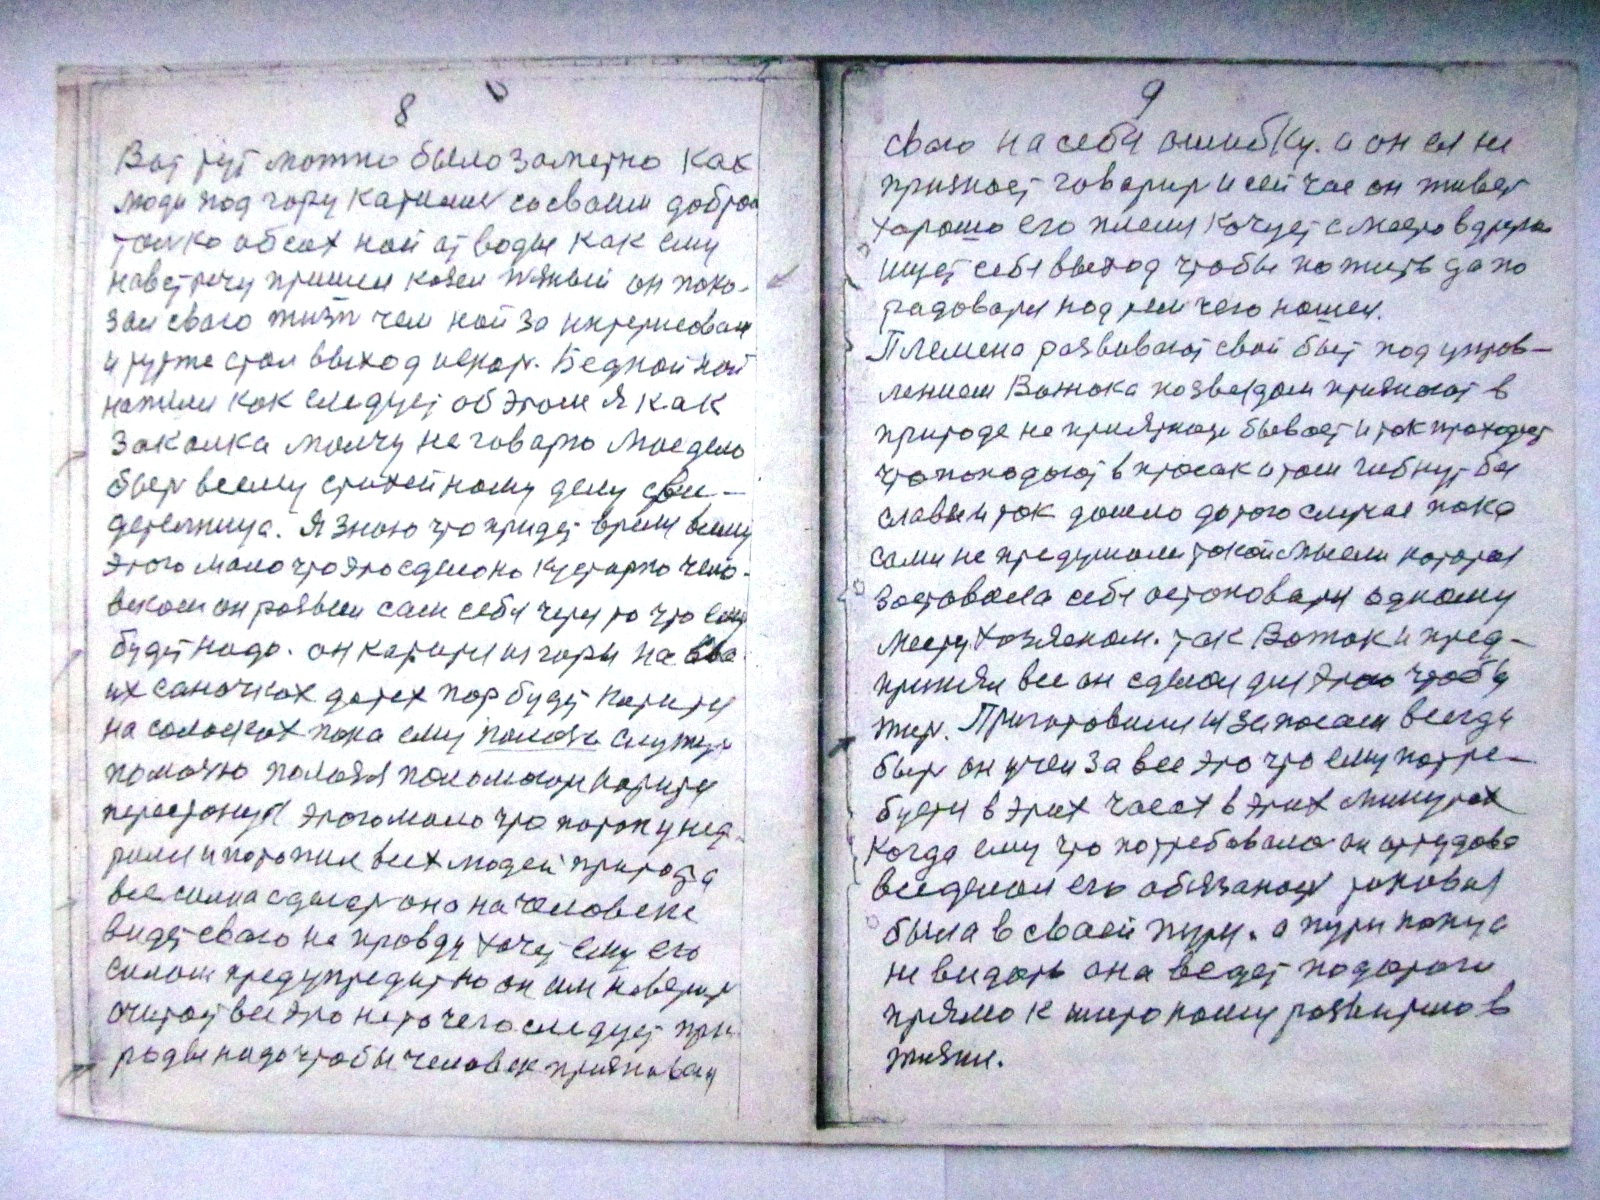 8
Вот тут можно было заметно как
люди под гору катили со своим добром
толко обсох ной от воды как ему
навстречу пришел козел пяный он пока-
зал свою жизн чем ной за интерисовал
и тут же стал выход искат. Бедной ной
нажил как следует об этом я как
закалка молчу не говарю мое дело
быт всему стихейному делу сви-
детелница. Я знаю что придет время всему
этого мало что это сделоно кустарно чело-
веком он розвил сам себя через то что ему
будет надо. он катится из горы на сво
их саночках до тех пор будет катится
на салазках пока ему полоза служут
помочю полозя поломаются катится
перестанут этого мало что потоп уност-
рили и потопил всех людей природа
все силна сделат она на человеке
видет свою не провду хочет ему его
силой предупредит но он им неверит
считает все это не то чего следует при-
роды надо чтобы человек признавал
9
свою на себя ошибку. а он ея не
признает говарит и сей час он живет
хорошо его племя кочует с место в другое
ищет себе выход чтобы пожить да по
радоватся над тем чего нашел.
Племена розвивают свой быт под управ-
лением Вожока по звездам признают в
природе не приятное бывает и так проходит
что попадают в просак и там гибнут без
славы и так дошло до того случая пока
сами не придумали такой мысли которая
заставила себя астановатся одному
месту хозяеном. так Вожок и пред-
принял все он сделал для этого чтобы
жит. Приготовился и запосам всегда
быт он учел за все это что ему потре-
буется в этих часах в этих минутах
когда ему что потребовалос он оттудова
все делал его обязаност таковая
была в своей пути. а пути конца
не видать она ведет по дороги
прямо к широкому розвитию в
жизни.